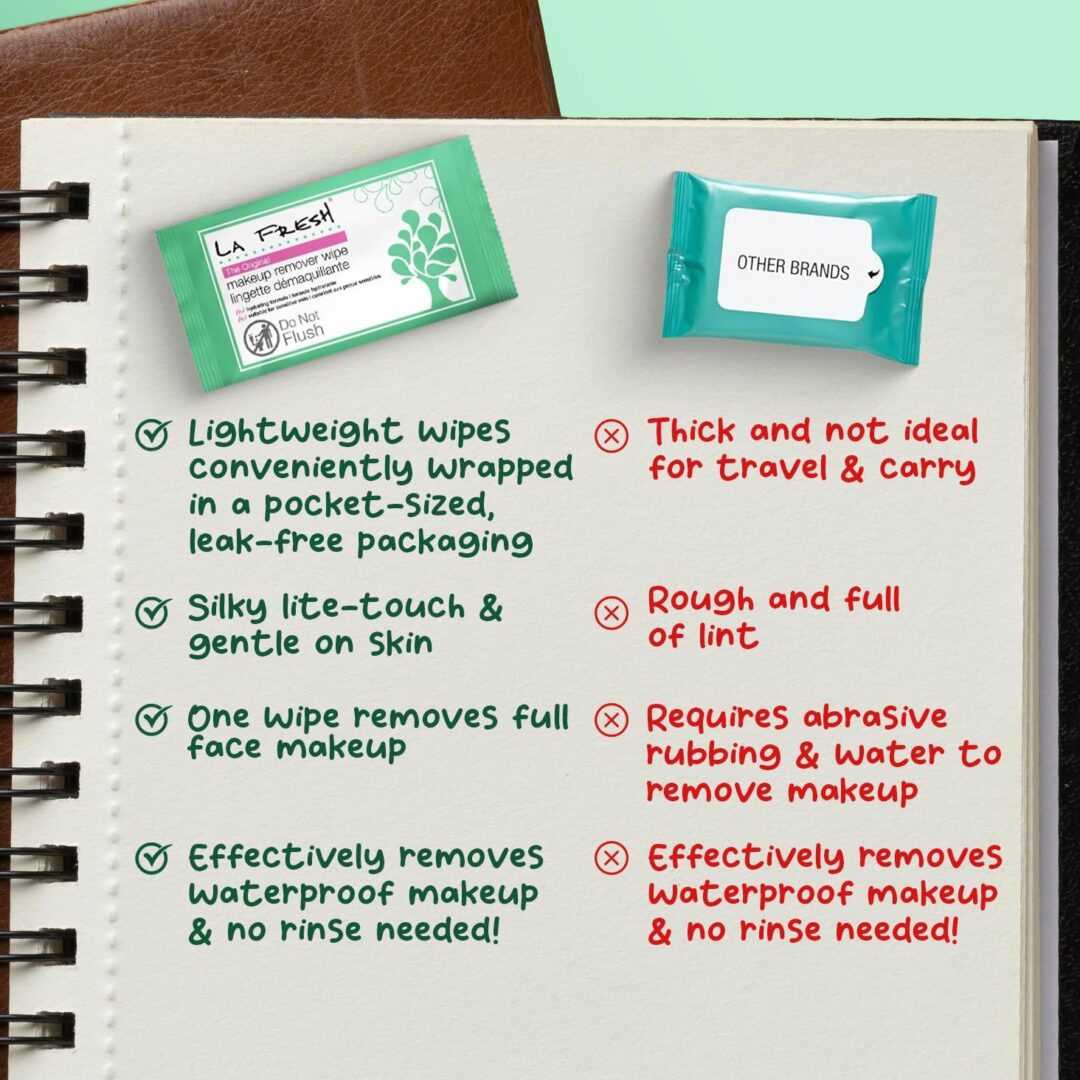 LA FRESH
The Original
makeup remover wipe
lingette démaquillante
hydrating formula | formule hydratante
suitable for sensitive skin | convient aux peaux sensibles
Do Not
Flush
OTHER BRANDS
Lightweight wipes
conveniently wrapped
in a pocket-sized,
leak-free packaging
Silky lite-touch &
gentle on Skin
One wipe removes full
face makeup
Effectively removes
waterproof makeup
& no rinse needed!
Thick and not ideal
for travel & carry
Rough and full
of lint
Requires abrasive
rubbing & water to
remove makeup
Effectively removes
waterproof makeup
& no rinse needed!